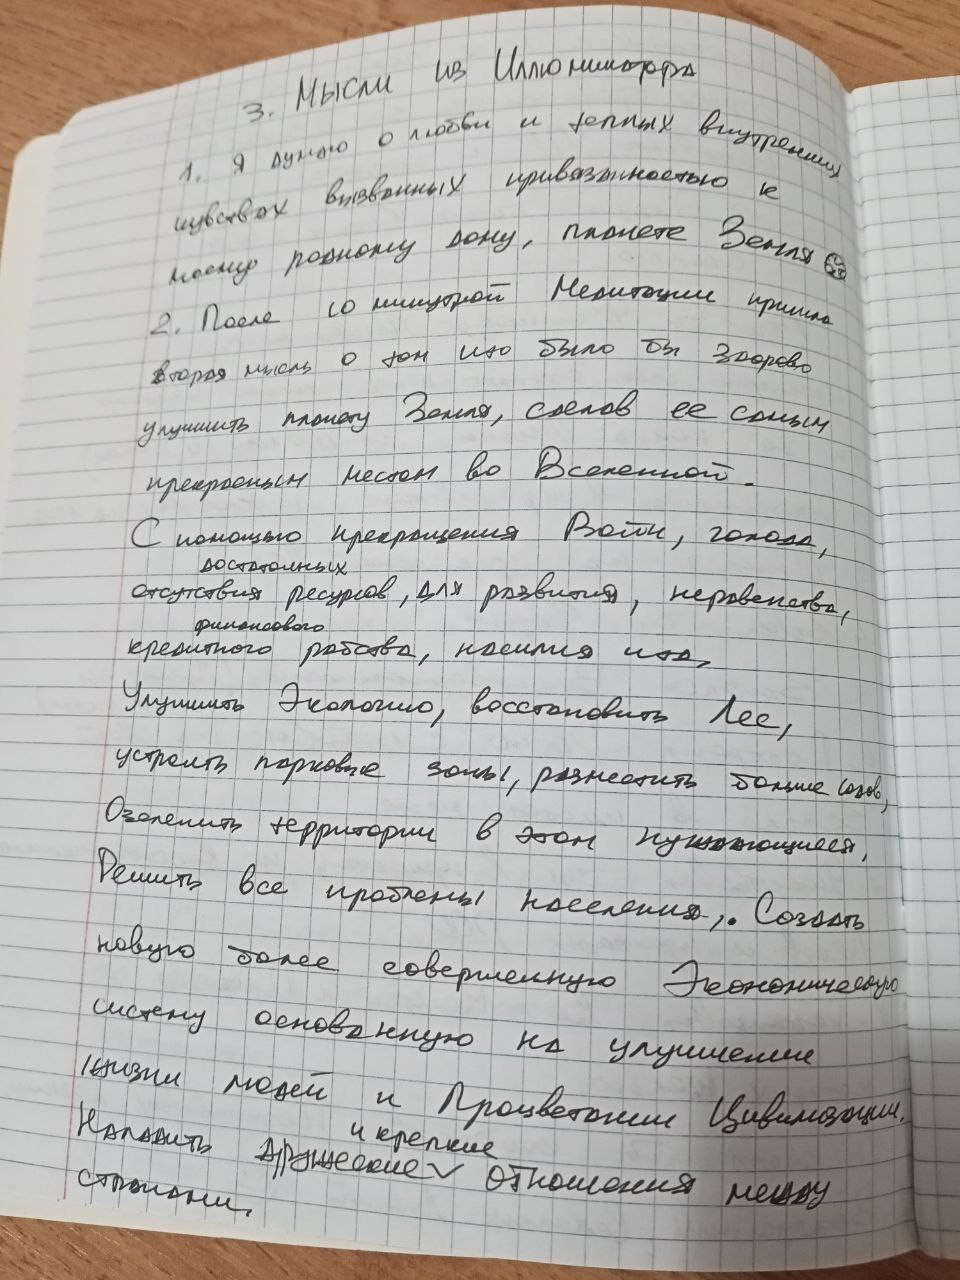 3. Мысли из Иллюминатора
1. Я думаю о любви и теплых внутренних
чувствах вызванных привязанностью к
моему родному дому, планете Земля
2. После 10 минутной Медитации пришла
вторая мысль о том что было бы здорово
улучшить планету Земля, сделав ее самым
прекрасным местом во Вселенной.
С помощью прекращения Войн, голода,
достаточных
отсутствия ресурсов, для развития, неравенства,
финансового
кредитного рабства, насилия итд,
Улучшить Экологию, восстановить Лес,
устроить парковые зоны, разместить больше садов,
Озеленить территории в этом нуждающиеся,
Решить все проблемы населения,. Создать
новую более совершенную Экономическую
систему основанную на улучшение
жизни людей и Процветании Цивилизации.
и крепкие
Наладить дружеские отношения между
странами.